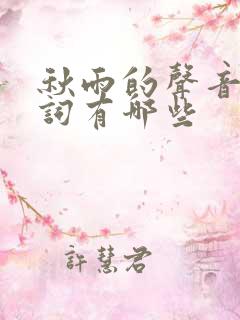 秋雨的聲音
詞有哪些
許慧君